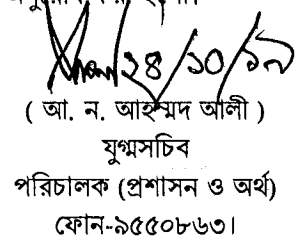 ২৪/১০/১৯
( আ. ন. আহম্মদ আলী )
যুগ্মসচিব
পরিচালক (প্রশাসন ও অর্থ)
ফোন-৯৫৫০৮৬৩।